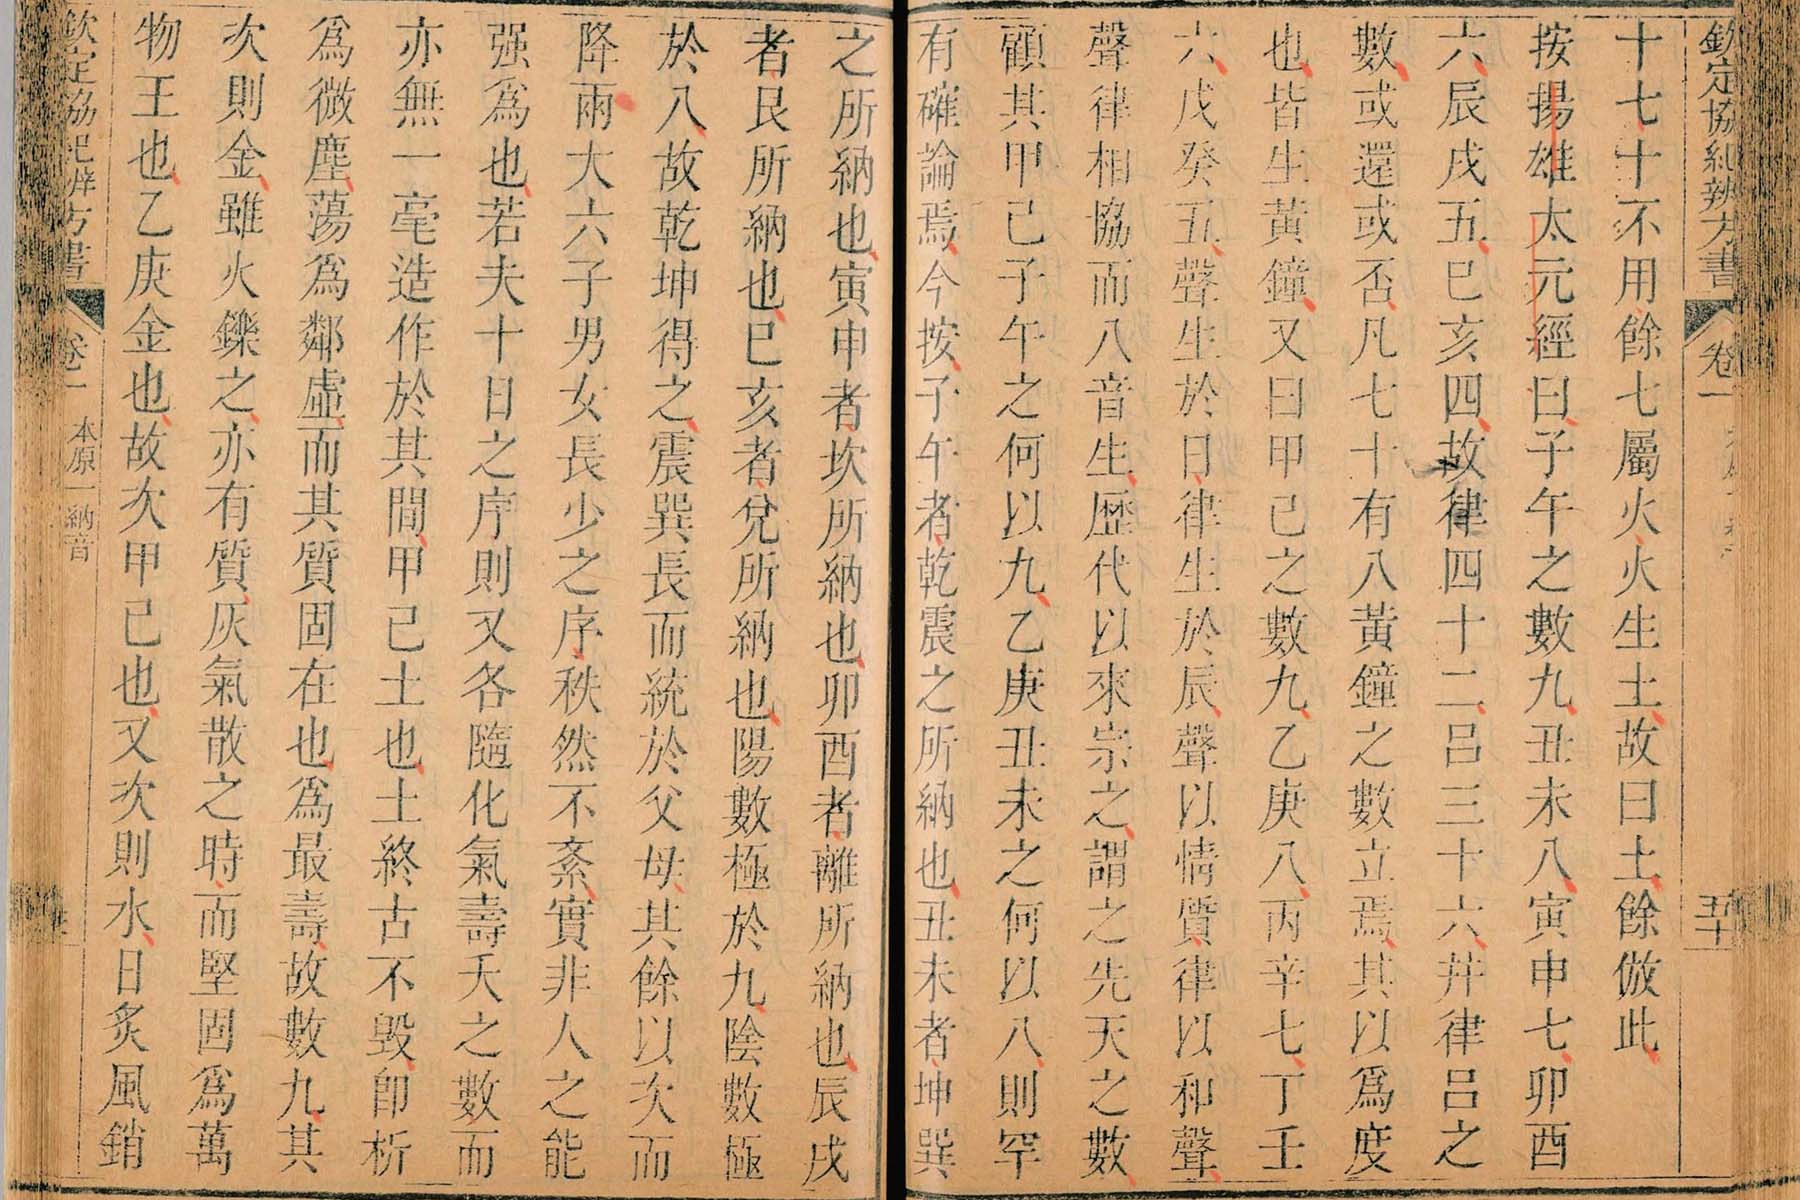 欽定協紀辨方書
卷一
十七十不用餘七屬火火生土故曰土餘倣此
按揚雄太元經曰子午之數九丑未八寅申七卯酉
六辰戌五巳亥四故律四十二呂三十六幷律呂之
數或還或否凡七十有八黃鐘之數立焉其以爲度
也皆生黃鐘又曰甲己之數九乙庚八丙辛七丁壬
六戊癸五聲生於日律生於辰聲以情質律以和聲
聲律相協而八音生歷代以來宗之謂之先天之數
顧其甲己子午之何以九乙庚丑未之何以八則罕
有確論焉今按子午者乾震之所納也丑未者坤巽
之所納也寅申者坎所納也卯酉者離所納也辰戌
者艮所納也巳亥者兌所納也陽數極於九陰數極
於八故乾坤得之震巽長而統於父母其餘以次而
降兩大六子男女長少之序秩然不紊實非人之能
强爲也若夫十日之序則又各隨化氣壽夭之數而
亦無一毫造作於其間甲己土也土終古不毀卽析
爲微塵蕩爲鄰虛而其質固在也爲最壽故數九其
次則金雖火鑠之亦有質灰氣散之時而堅固爲萬
物王也乙庚金也故次甲己也又次則水日炙風銷
欽定協紀辨方書
卷一
本原一納音